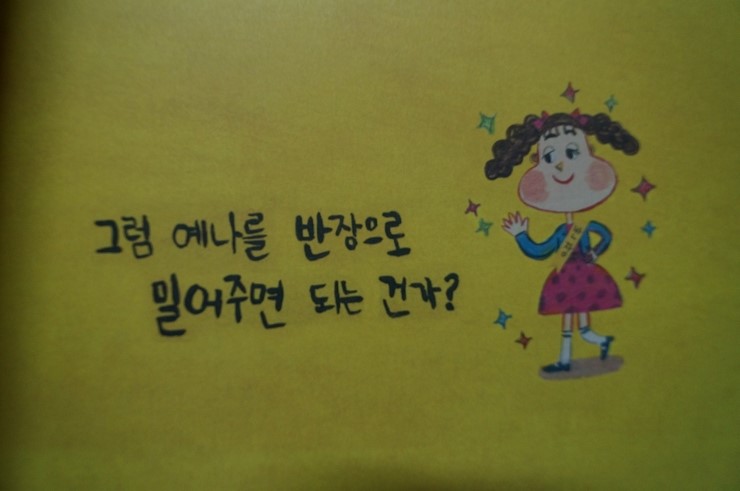 그럼 예나를 반장으로
밀어주면 되는 건가?